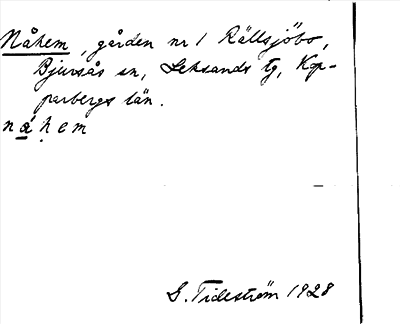 Nåhem, gården nr 1 Rällsjöbo,
Bjursås sn, Leksands tg, Kop-
parbergs län.
nå̱ḥem
G. Tideström 1928